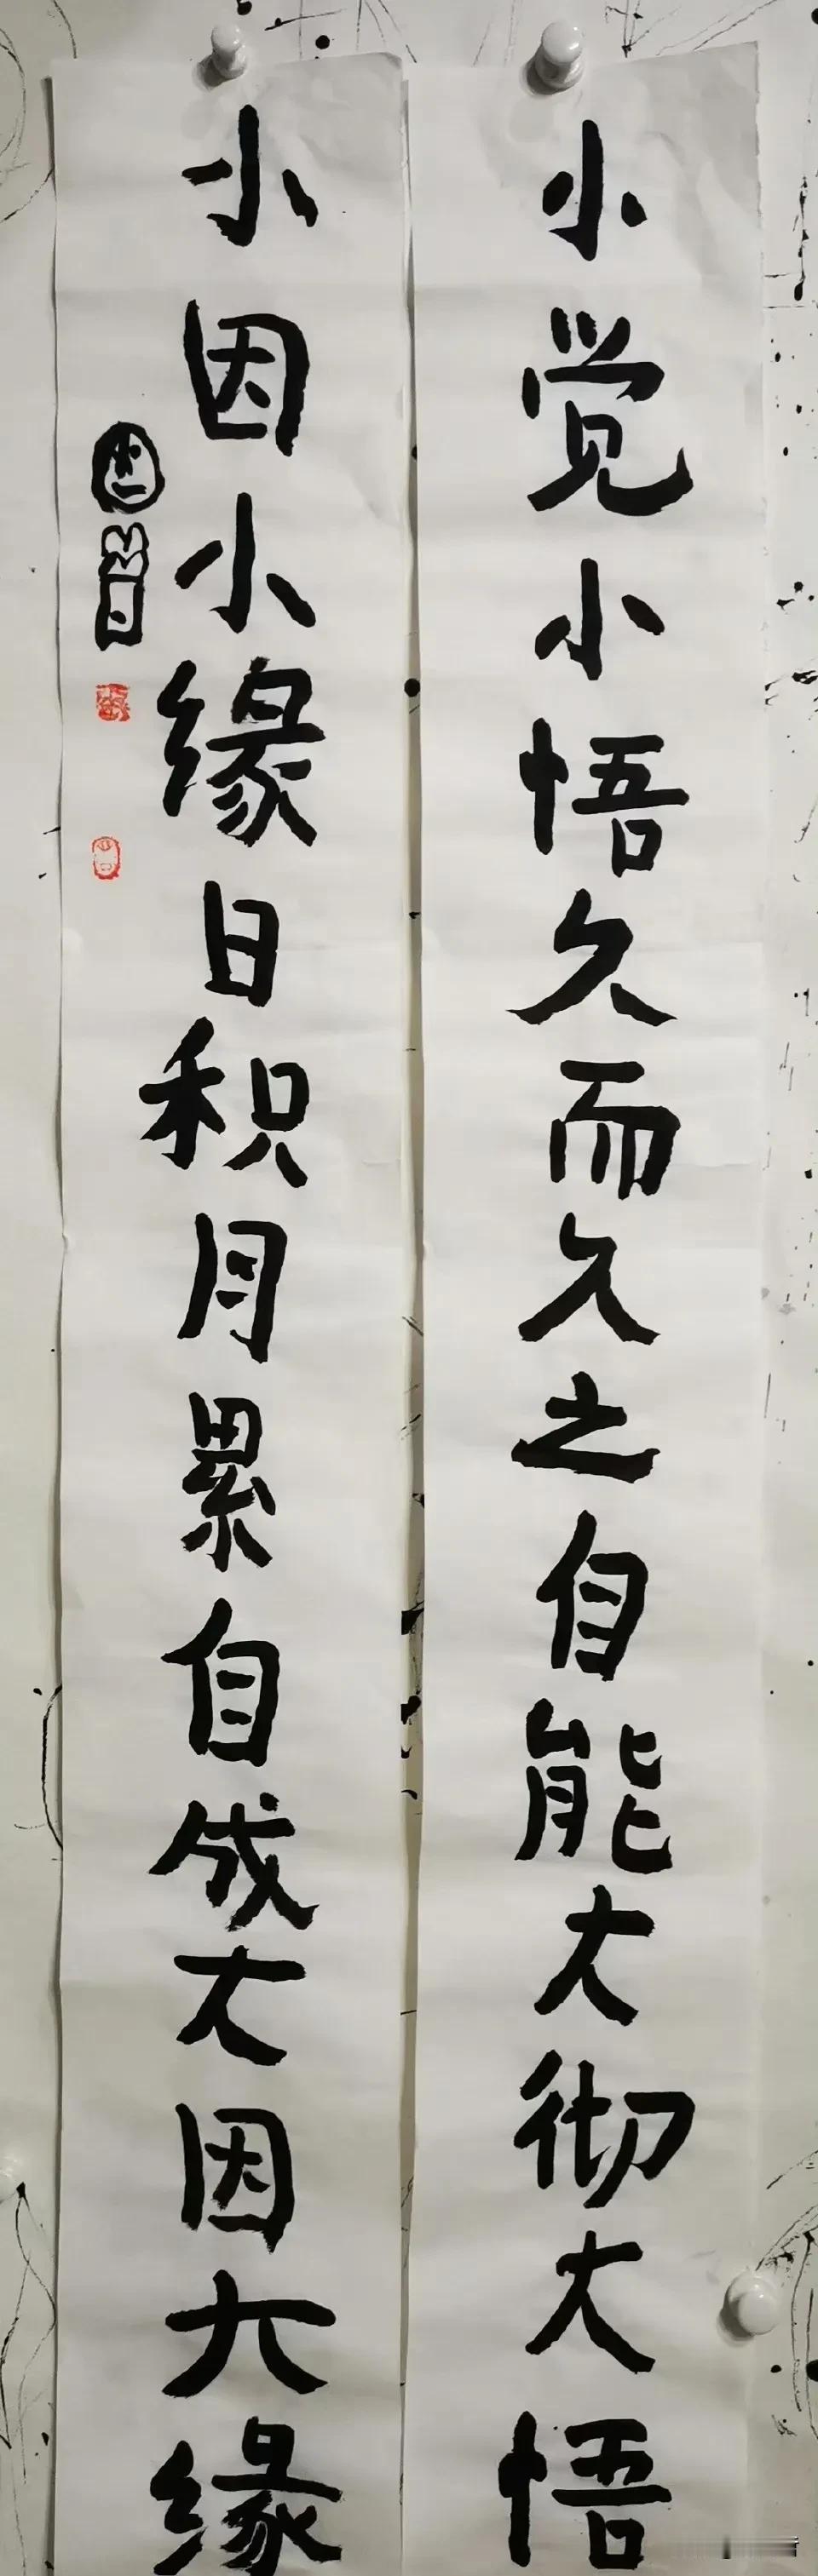 小觉小悟久而久之自能大彻大悟
小因小缘日积月累自成大因大缘